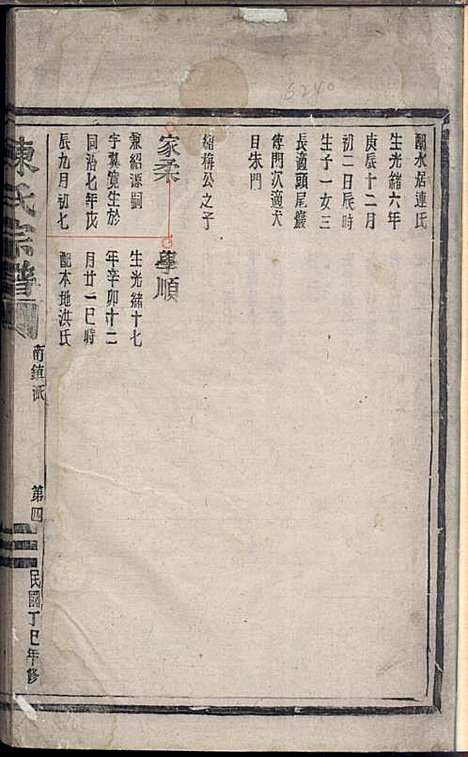 6240
水居連氏
生光緒六年
庚辰十二月
初二日辰時
生子一女三
長適頭尾
傅門次適犬
目朱門
紹梅公之子
家柔
兼紹源嗣
字翼寬生於
同治七年戊
辰九月初七
學順
生光緒十七
年辛卯十二
月廿二巳時
配本地洪氏
陳氏宗譜
南鎮派
第四
民國丁巳年修